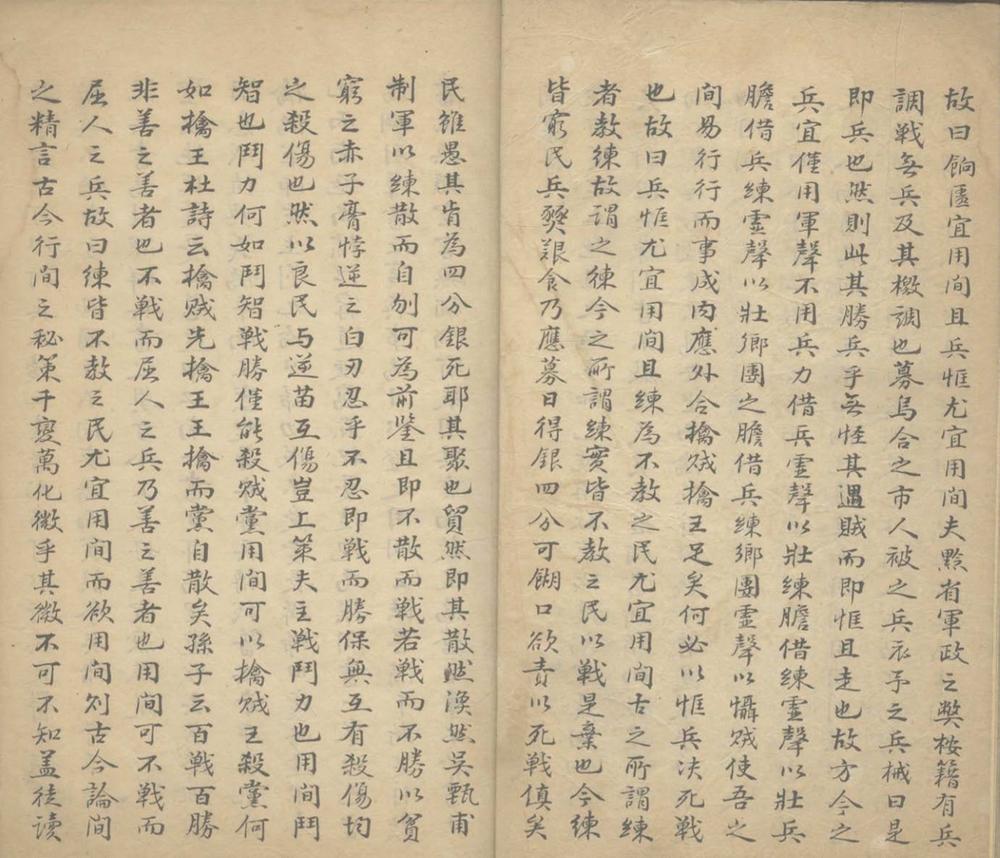 故曰餉匱宜用間且兵恇尤宜用間夫黔省軍政之獘桉籍有兵
調戦无兵及其檄調也募烏合之市人被之兵衣予之兵械曰是
即兵也然則此其勝兵乎无恠其遇賊而即恇且走也故方今之
兵宜僅用軍聲不用兵力借兵霊聲以壯練膽借練霊聲以壯兵
膽借兵練霊聲以壯鄉團之膽借兵練鄉團霊聲以懾賊使吾之
間易行行而事成内應外合擒賊擒王足矣何必以恇兵决死戦
也故曰兵恇尤宜用間且練為不教之民尤宜用間古之所謂練
者教練故謂之練今之所謂練實皆不教之民以戦是棄也今練
皆窮民兵燹艱食乃應募日得銀四分可餬口欲責以死戦傎矣
民雖愚其肯為四分銀死耶其聚也貿然即其散也渙然吴甄甫
制軍以練散而自刎可為前鉴且即不散而戦若戦而不勝以貧
窮之赤子膏悖逆之白刃忍乎不忍即戦而勝保無互有殺傷均
之殺傷也然以良民与逆苗互傷豈上策夫主戦鬥力也用間鬥
智也鬥力何如鬥智戦勝僅能殺賊黨用間可以擒賊王殺黨何
如擒王杜詩云擒賊先擒王王擒而黨自散矣孫子云百戦百勝
非善之善者也不戦而屈人之兵乃善之善者也用間可不戦而
屈人之兵故曰練皆不教之民尤宜用間而欲用間则古今論間
之精言古今行間之秘策千變萬化微乎其微不可不知盖徒读